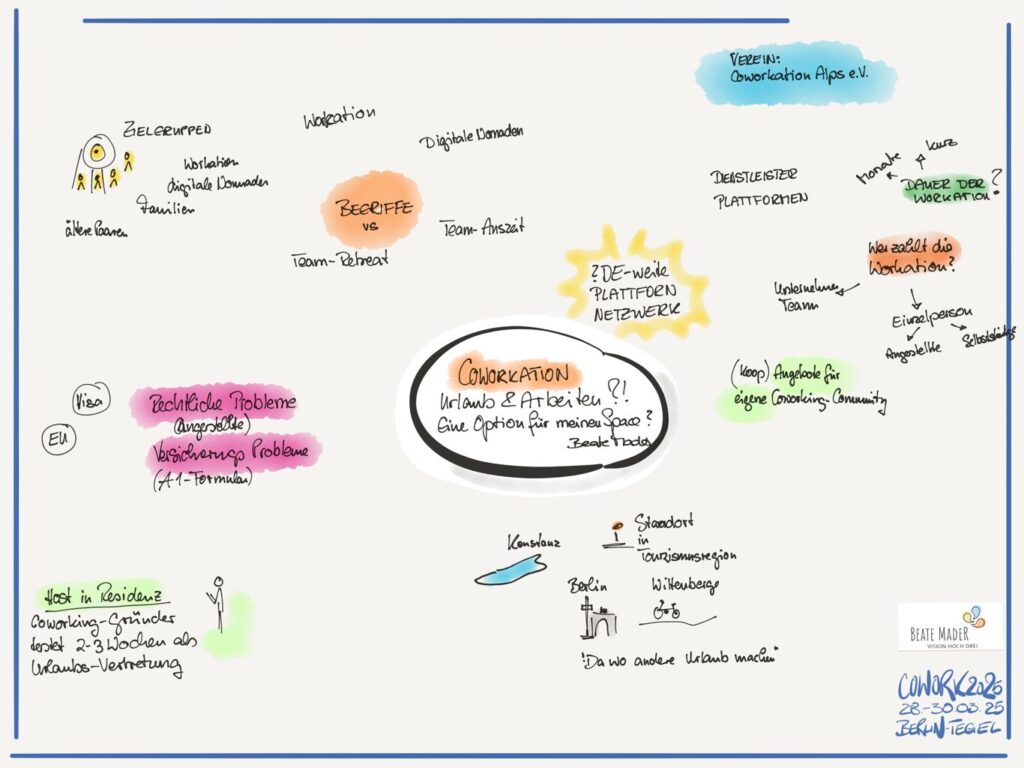 VEREIN:
Coworkation Alps e.V.
ZIELGRUPPEN
Workation
digitale Nomaden
Familien
ältere Paaren
Workation
Digitale Nomaden
BEGRIFFE
VS
Team-Auszeit
Team-Retreat
DIENSTLEISTER
PLATTFORMEN
Monate
kurz
DAUER DER
WORKATION?
Wer zahlt die
Workation?
Unternehmen
Team
Einzelperson
Angestellte
Selbstständige
?DE-weite
PLATTFORM
NETZWERK
(Koop) Angebote für
eigene Coworking-Community
COWORKATION
Urlaub & Arbeiten ?!
Eine Option für meinen Space?
Beate Mader
Visa
EU
Rechtliche Probleme
(Angestellte)
Versicherungs Probleme
(A1-Formular)
Konstanz
Standort
in
Tourismusregion
Berlin
Wittenberge
"Da wo andere Urlaub machen"
Host in Residenz
Coworking-Gründer
testet 2-3 Wochen als
Urlaubs-Vertretung
BEATE MADER
VISION HOCH DREI
COWORK2025
28.-30.03.25
BERLIN-TEGEL